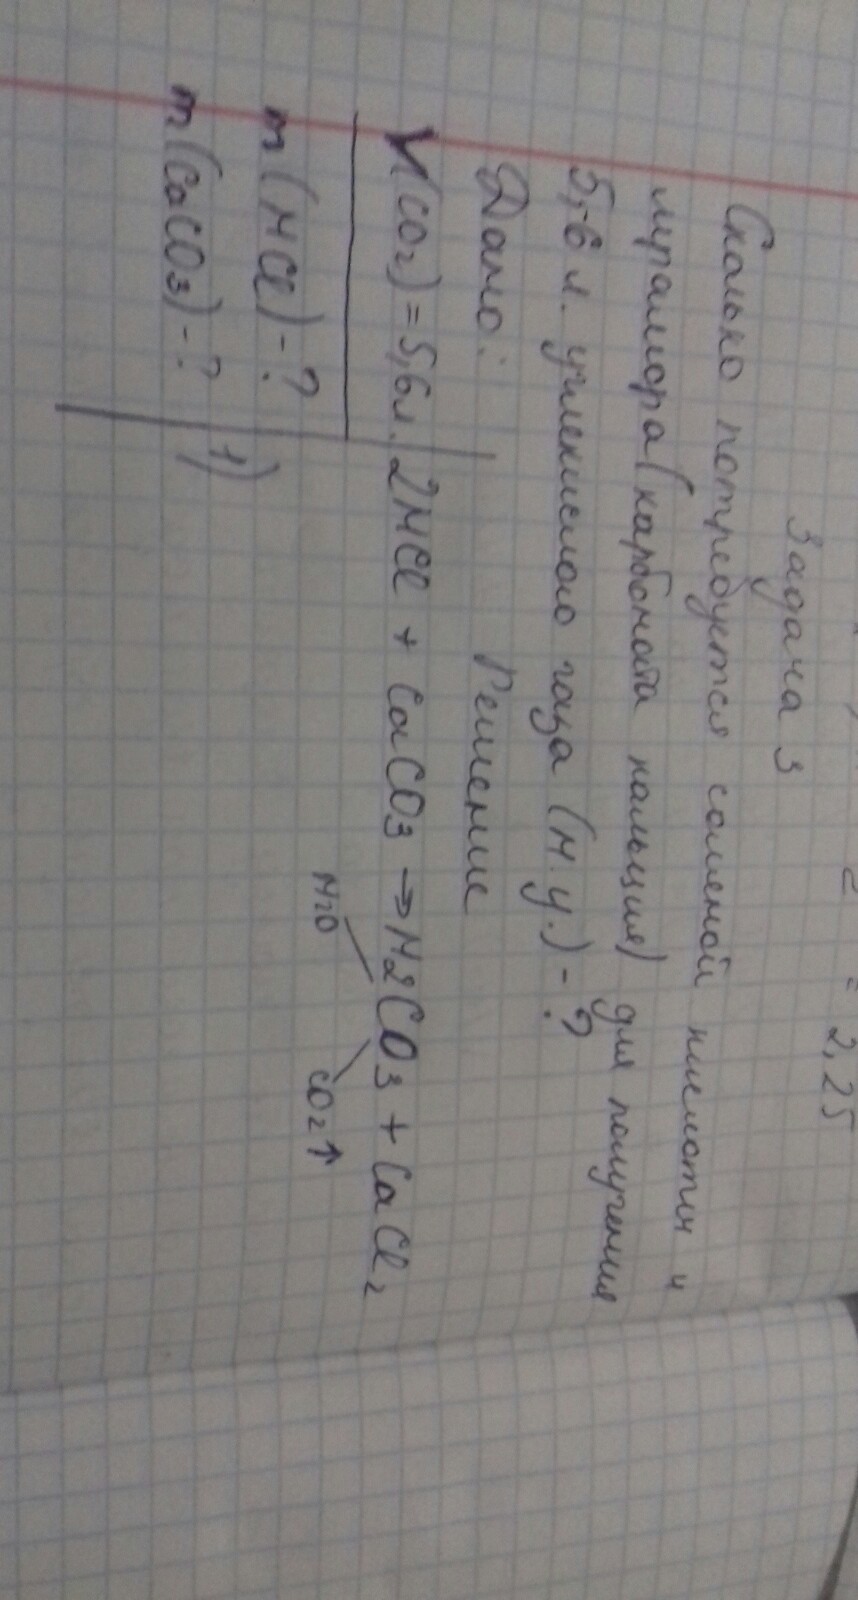 = 2,25
Задача 3
Сколько потребуется соляной кислоты и
мрамора (карбоната кальция) для получения
5,6 л. углекислого газа (н.у.) - ?
Дано: Решение
V(CO2) = 5,6л. 2HCl + CaCO3 → H2CO3 + CaCl2
H2O CO2↑
m(HCl) - ?
m(CaCO3) - ? 1)